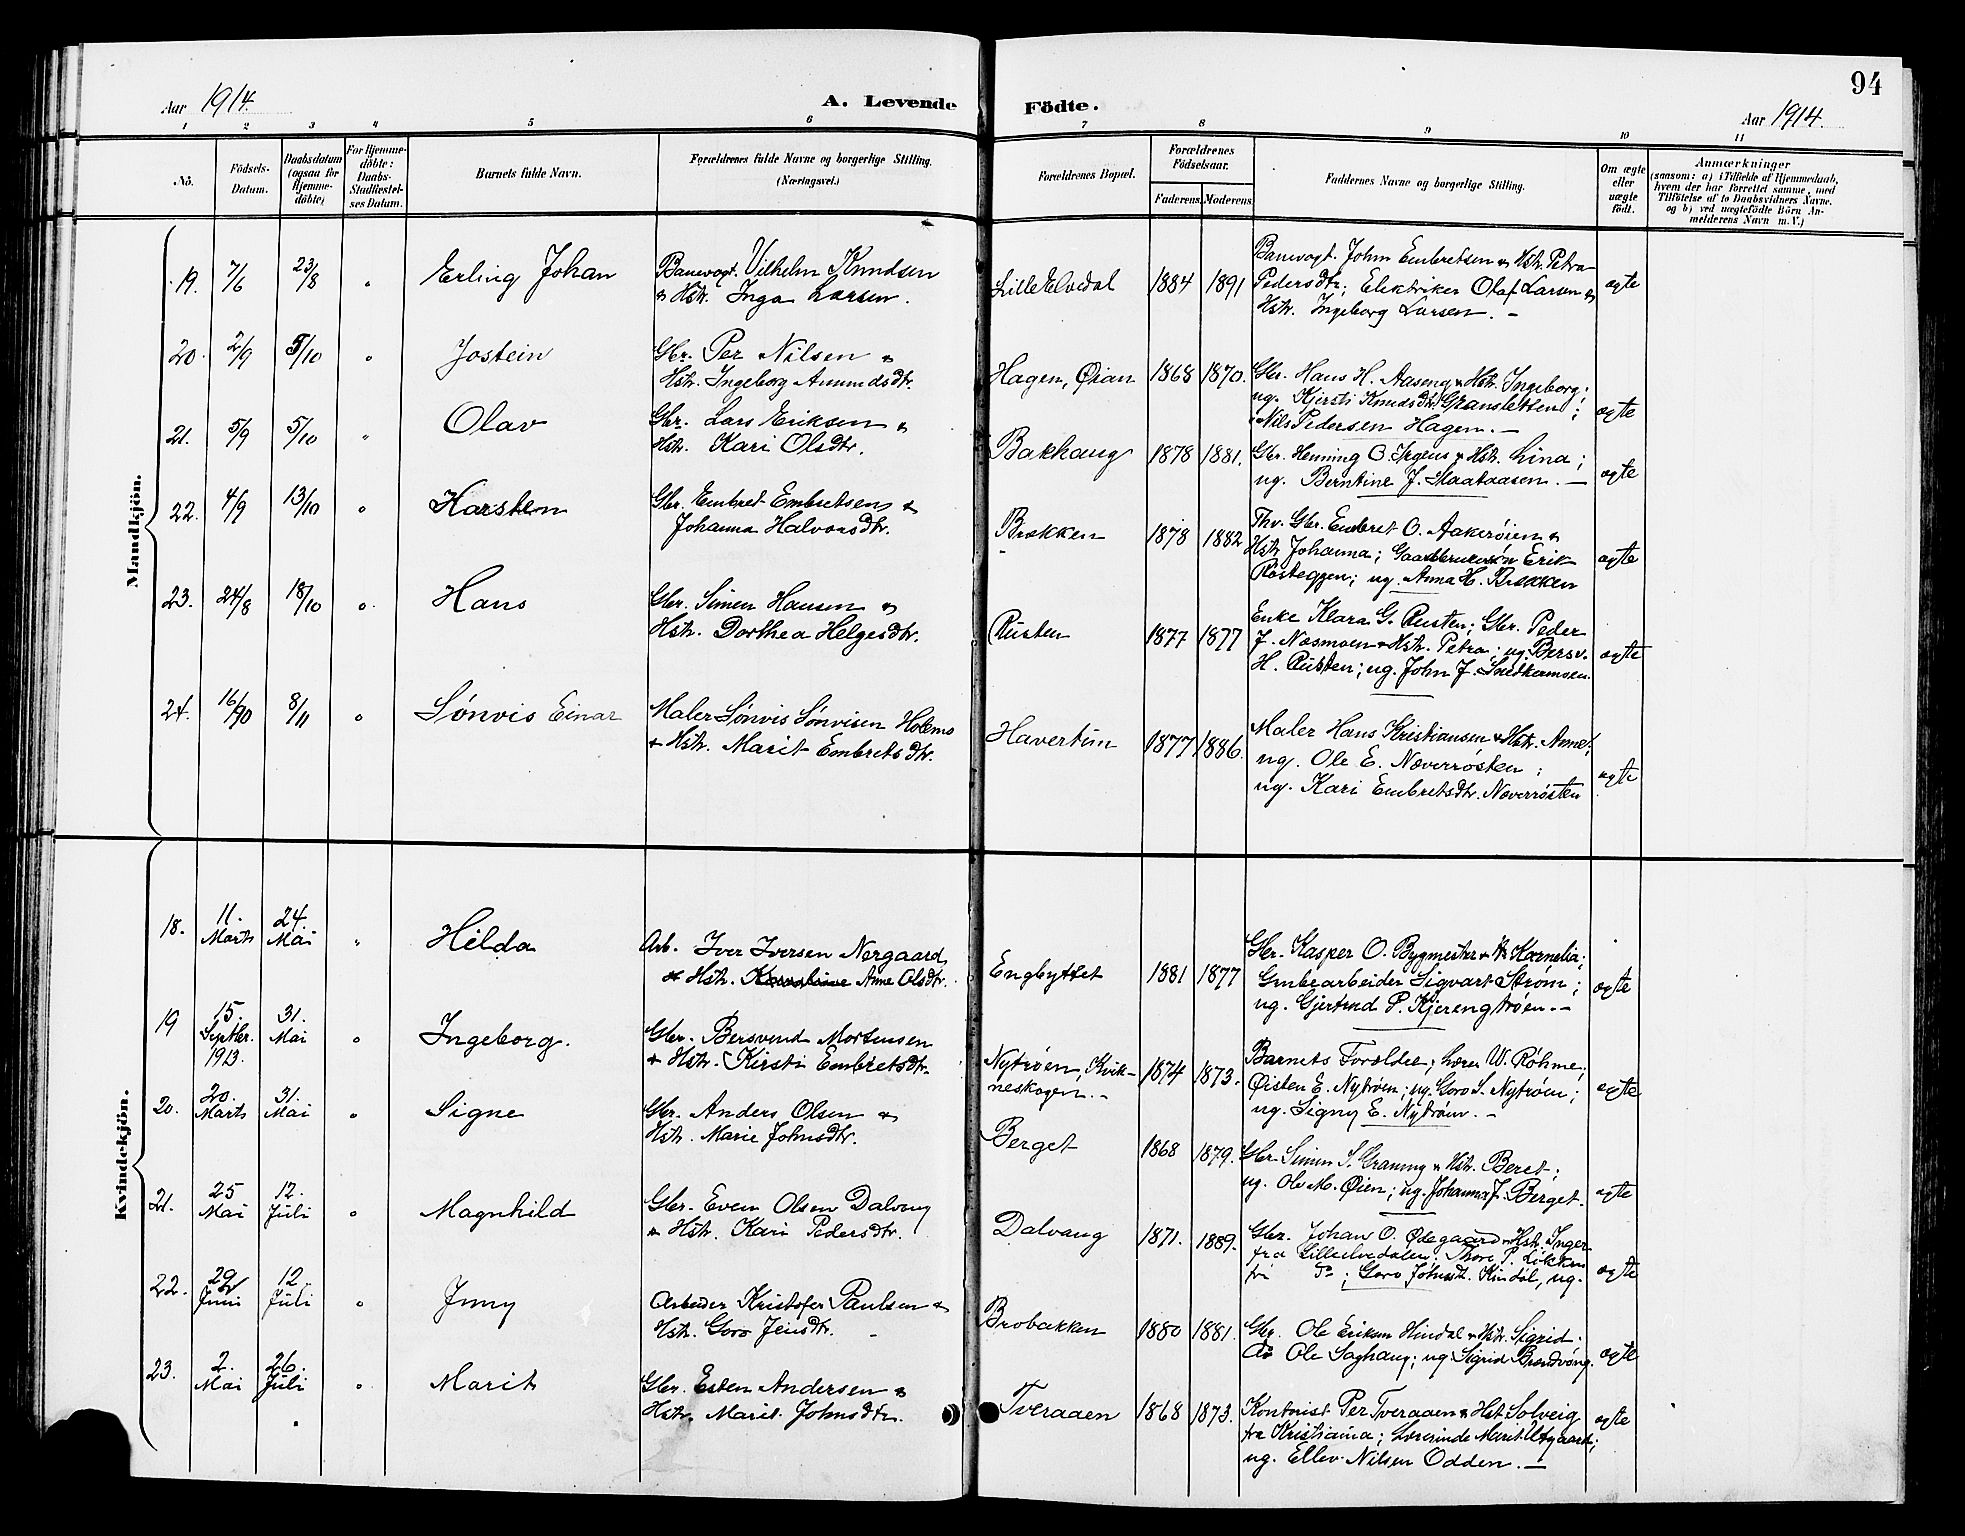 94
Aar 1914.
A. Levende Födte.
Aar 1914.
1 2 3 4 5 6 7 8 9 10 11
Nô.
Födsels-
Datum.
Daabsdatum
(ogsaa for
Hjemme-
döbte)
For Hjemme-
döbte:
Daabs-
Stadfæstel-
ses Datum.
Barnets fulde Navn.
Forældrenes fulde Navne og borgerlige Stilling.
(Næringsvei.)
Forældrenes Bopæl.
Forældrenes
Födselsaar.
Faderens. Moderens.
Faddernes Navne og borgerlige Stilling.
Om ægte
eller
uægte
födt.
Anmærkninger
(saasom: a) i Tilfælde af Hjemmedaab,
hvem der har forrettet samme, med
Tilföielse af to Daabsvidners Navne.
og b) ved uægtefödte Börn An-
melderens Navn m. V.)
Mandkjön.
19. 7/6 23/8 " Erling Johan
Banevogt. Vilhelm Knudsen
& Hstr. Inga Larsen.
Lille Elvedal 1884 1891
Banevogt. John Embretsen & Hstr. Petra
Pedersdtr; Elektriker Olaf Larsen &
Hstr. Ingeborg Larsen. –
ægte
20. 2/9 5/10 " Jostein
Gbr. Per Nilsen &
Hstr. Ingeborg Amundsdtr.
Hagen, Øian 1868 1870.
Gbr. Hans H. Aaseng & Hstr. Ingeborg;
ug. Kjersti Knudsdtr. Gransletten;
Nils Pedersen Hagen. –
ægte
21. 5/9 5/10 " Olav
Gbr. Lars Eriksen &
Hstr. Kari Olsdtr.
Bakhaug 1878 1881.
Gbr. Henning O. Irgens & Hstr. Lina;
ug. Berntine J. Staataasen. –
ægte
22. 4/9 13/10 " Karsten
Gbr. Embret Embretsen &
Johanna Halvorsdtr.
Brækken 1878 1882
Thv. Gbr. Embret O. Aakerøien &
Hstr Johanna; Gaardbrukersøn Erik
Rosteggen; ug. Anna H. Brækken
ægte
23. 24/8 18/10 " Hans
Gbr. Simen Hansen &
Hstr. Dorthea Helgesdtr.
Rusten 1877 1877
Enke Klara G. Rusten; Gbr. Peder
J. Næsmoen & Hstr. Petra; ug. Bersv.
H. Rusten; ug. John J.
ægte
24. 16/10 8/11 " Sønvis Einar
Maler Sønvis Sønvisen Holemo
& Hstr. Marit Embretsdtr.
Havertun 1877 1886.
Maler Hans Kristiansen & Hstr. Anne;
ug. Ole E. Næverrøsten;
ug. Kari Embretsdtr. Næverrøsten
ægte
Kvindekjön.
18. 11. Marts 24. Mai " Hilda
Arb. Iver Iversen Nergaard
& Hstr. Anne Olsdtr.
Engbyttet 1881 1877
Gbr. Kasper O. Bygmester & H. Kornelia;
Grubearbeider Sigvart Strøm;
ug. Gjertrud P. Kjerengtrøen. –
ægte
19 15. Septbr. 1913. 31. Mai " Ingeborg.
Gbr. Bersvend Mortensen
& Hstr. Kirsti Embretsdtr.
Nytrøen, Kvik-
neskogen. – 1874 1873.
Barnets Forældre; Lærer W. Röhme;
Øisten E. Nytrøen; ug. Goro S. Nytrøen;
ug. Signy E. Nytrøen. –
ægte
20. 20. Marts 31. Mai " Signe
Gbr. Anders Olsen &
Hstr. Marie Johnsdtr.
Berget 1868 1879.
Gbr. Simen S. Graneng & Hstr. Beret;
ug. Ole M. Øien; ug. Johanna J. Berget.
ægte
21. 25 Mai 12. Juli " Magnhild
Gbr. Even Olsen Dalvang
& Hstr. Kari Pedersdtr.
Dalvang 1871. 1889.
Gbr. Johan O. Ødegaard & Hstr. Inger
fra Lilleelvedalen. Thore P. Løkken
fri Do; Goro Johnsdtr. Kindøl, ug.
ægte
22. 29 Juni 12 Juli " Jenny
Arbeider Kristofer Paulsen &
Hstr. Goro Jensdtr. –
Brobakken 1880 1881.
Gbr. Ole Eriksen Hindal & Hstr. Sigrid.
Ole Saghaug; ug. Sigrid Brendvang.
ægte
23. 2. Mai 26. Juli " Marit
Gbr. Esten Andersen &
Hstr. Marit Johnsdtr.
Tveraaen 1868 1873.
Kontorist Per Tveraaen & Hst Solveig
fra Kristiania; Lærerinde Marit Utgaard;
ug. Ellev Nilsen Odden. –
ægte